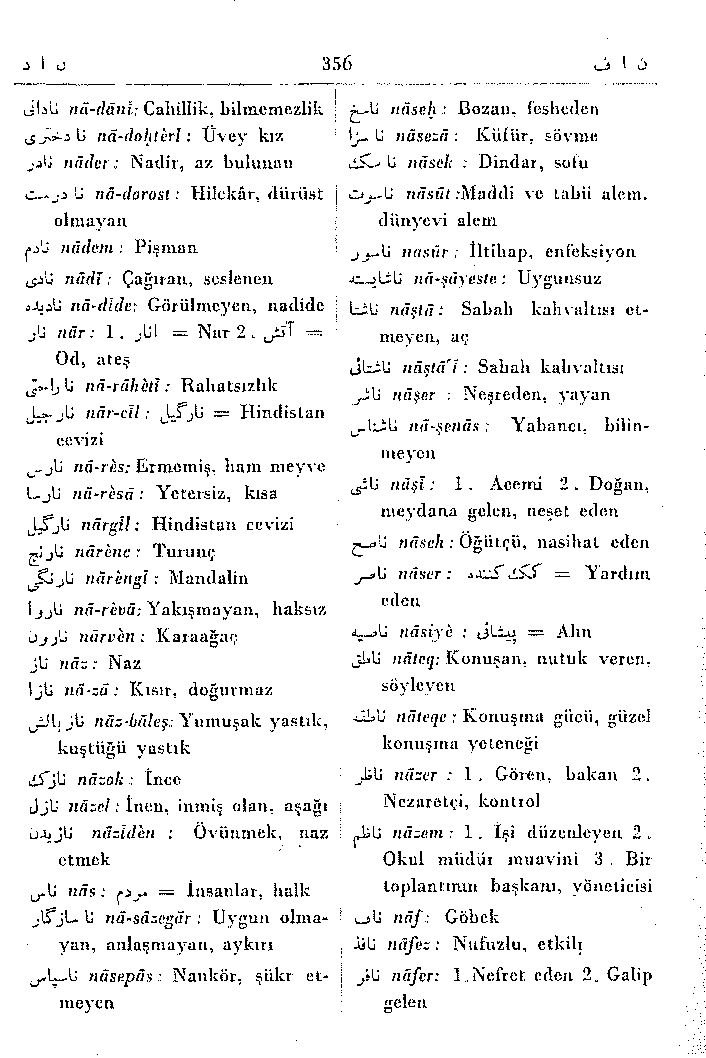 ن ا د 356 ن ا ف
نادانی nā-dānī: Cahillik, bilmemezlik
نا دختری nā-dohtèrī : Üvey kız
نادر nāder : Nadir, az bulunan
نا درست nā-dorost : Hilekâr, dürüst
olmayan
نادم nādem : Pişman
نادی nādī : Çağıran, seslenen
نادیده nā-dide: Görülmeyen, nadide
نار nār : 1. انار = Nar 2. آتش =
Od, ateş
نا راحتی nā-rāhètī : Rahatsızlık
نارجیل nār-cīl : نارگیل = Hindistan
cevizi
نارس nā-rès: Ermemiş, ham meyve
نارسا nā-rèsā : Yetersiz, kısa
نارگیل nārgīl : Hindistan cevizi
نارنج nārènc : Turunç
نارنگی nārèngī : Mandalin
ناروا nā-rèvā: Yakışmayan, haksız
نارون nārvèn : Karaağaç
ناز nāz : Naz
نازا nā-zā : Kısır, doğurmaz
ناز بالش nāz-bāleş: Yumuşak yastık,
kuştüğü yastık
نازک nāzok : İnce
نازل nāzel : İnen, inmiş olan, aşağı
نازیدن nāzīdèn : Övünmek, naz
etmek
ناس nās : مردم = İnsanlar, halk
نا سازگار nā-sāzegār : Uygun olma-
yan, anlaşmayan, aykırı
ناسپاس nāsepās : Nankör, şükr et-
meyen
ناسخ nāseh : Bozan, fesheden
نا سزا nāsezā : Küfür, sövme
نا سک nāsek : Dindar, sofu
ناسوت nāsūt :Maddi ve tabii alem,
dünyevi alem
ناسور nasūr : İltihap, enfeksiyon
ناشایسته nā-şāyeste : Uygunsuz
ناشتا nāştā : Sabah kahvaltısı et-
meyen, aç
ناشتائی nāştā'ī : Sabah kahvaltısı
ناشر nāşer : Neşreden, yayan
ناشناس nā-şenās : Yabancı, bilin-
meyen
ناشی nāşī : 1. Acemi 2. Doğan,
meydana gelen, neşet eden
ناصح nāseh : Öğütçü, nasihat eden
ناصر nāser : کمک کننده = Yardım
eden
ناصیه nāsiyè : پیشانی = Alın
ناطق nāteq: Konuşan, nutuk veren,
söyleyen
ناطقه nāteqe : Konuşma gücü, güzel
konuşma yeteneği
ناظر nāzer : 1. Gören, bakan 2.
Nezaretçi, kontrol
ناظم nāzem : 1. İşi düzenleyen 2.
Okul müdür muavini 3. Bir
toplantının başkanı, yöneticisi
ناف nāf : Göbek
نافذ nāfez : Nufuzlu, etkili
نافر nāfer: 1.Nefret eden 2. Galip
gelen